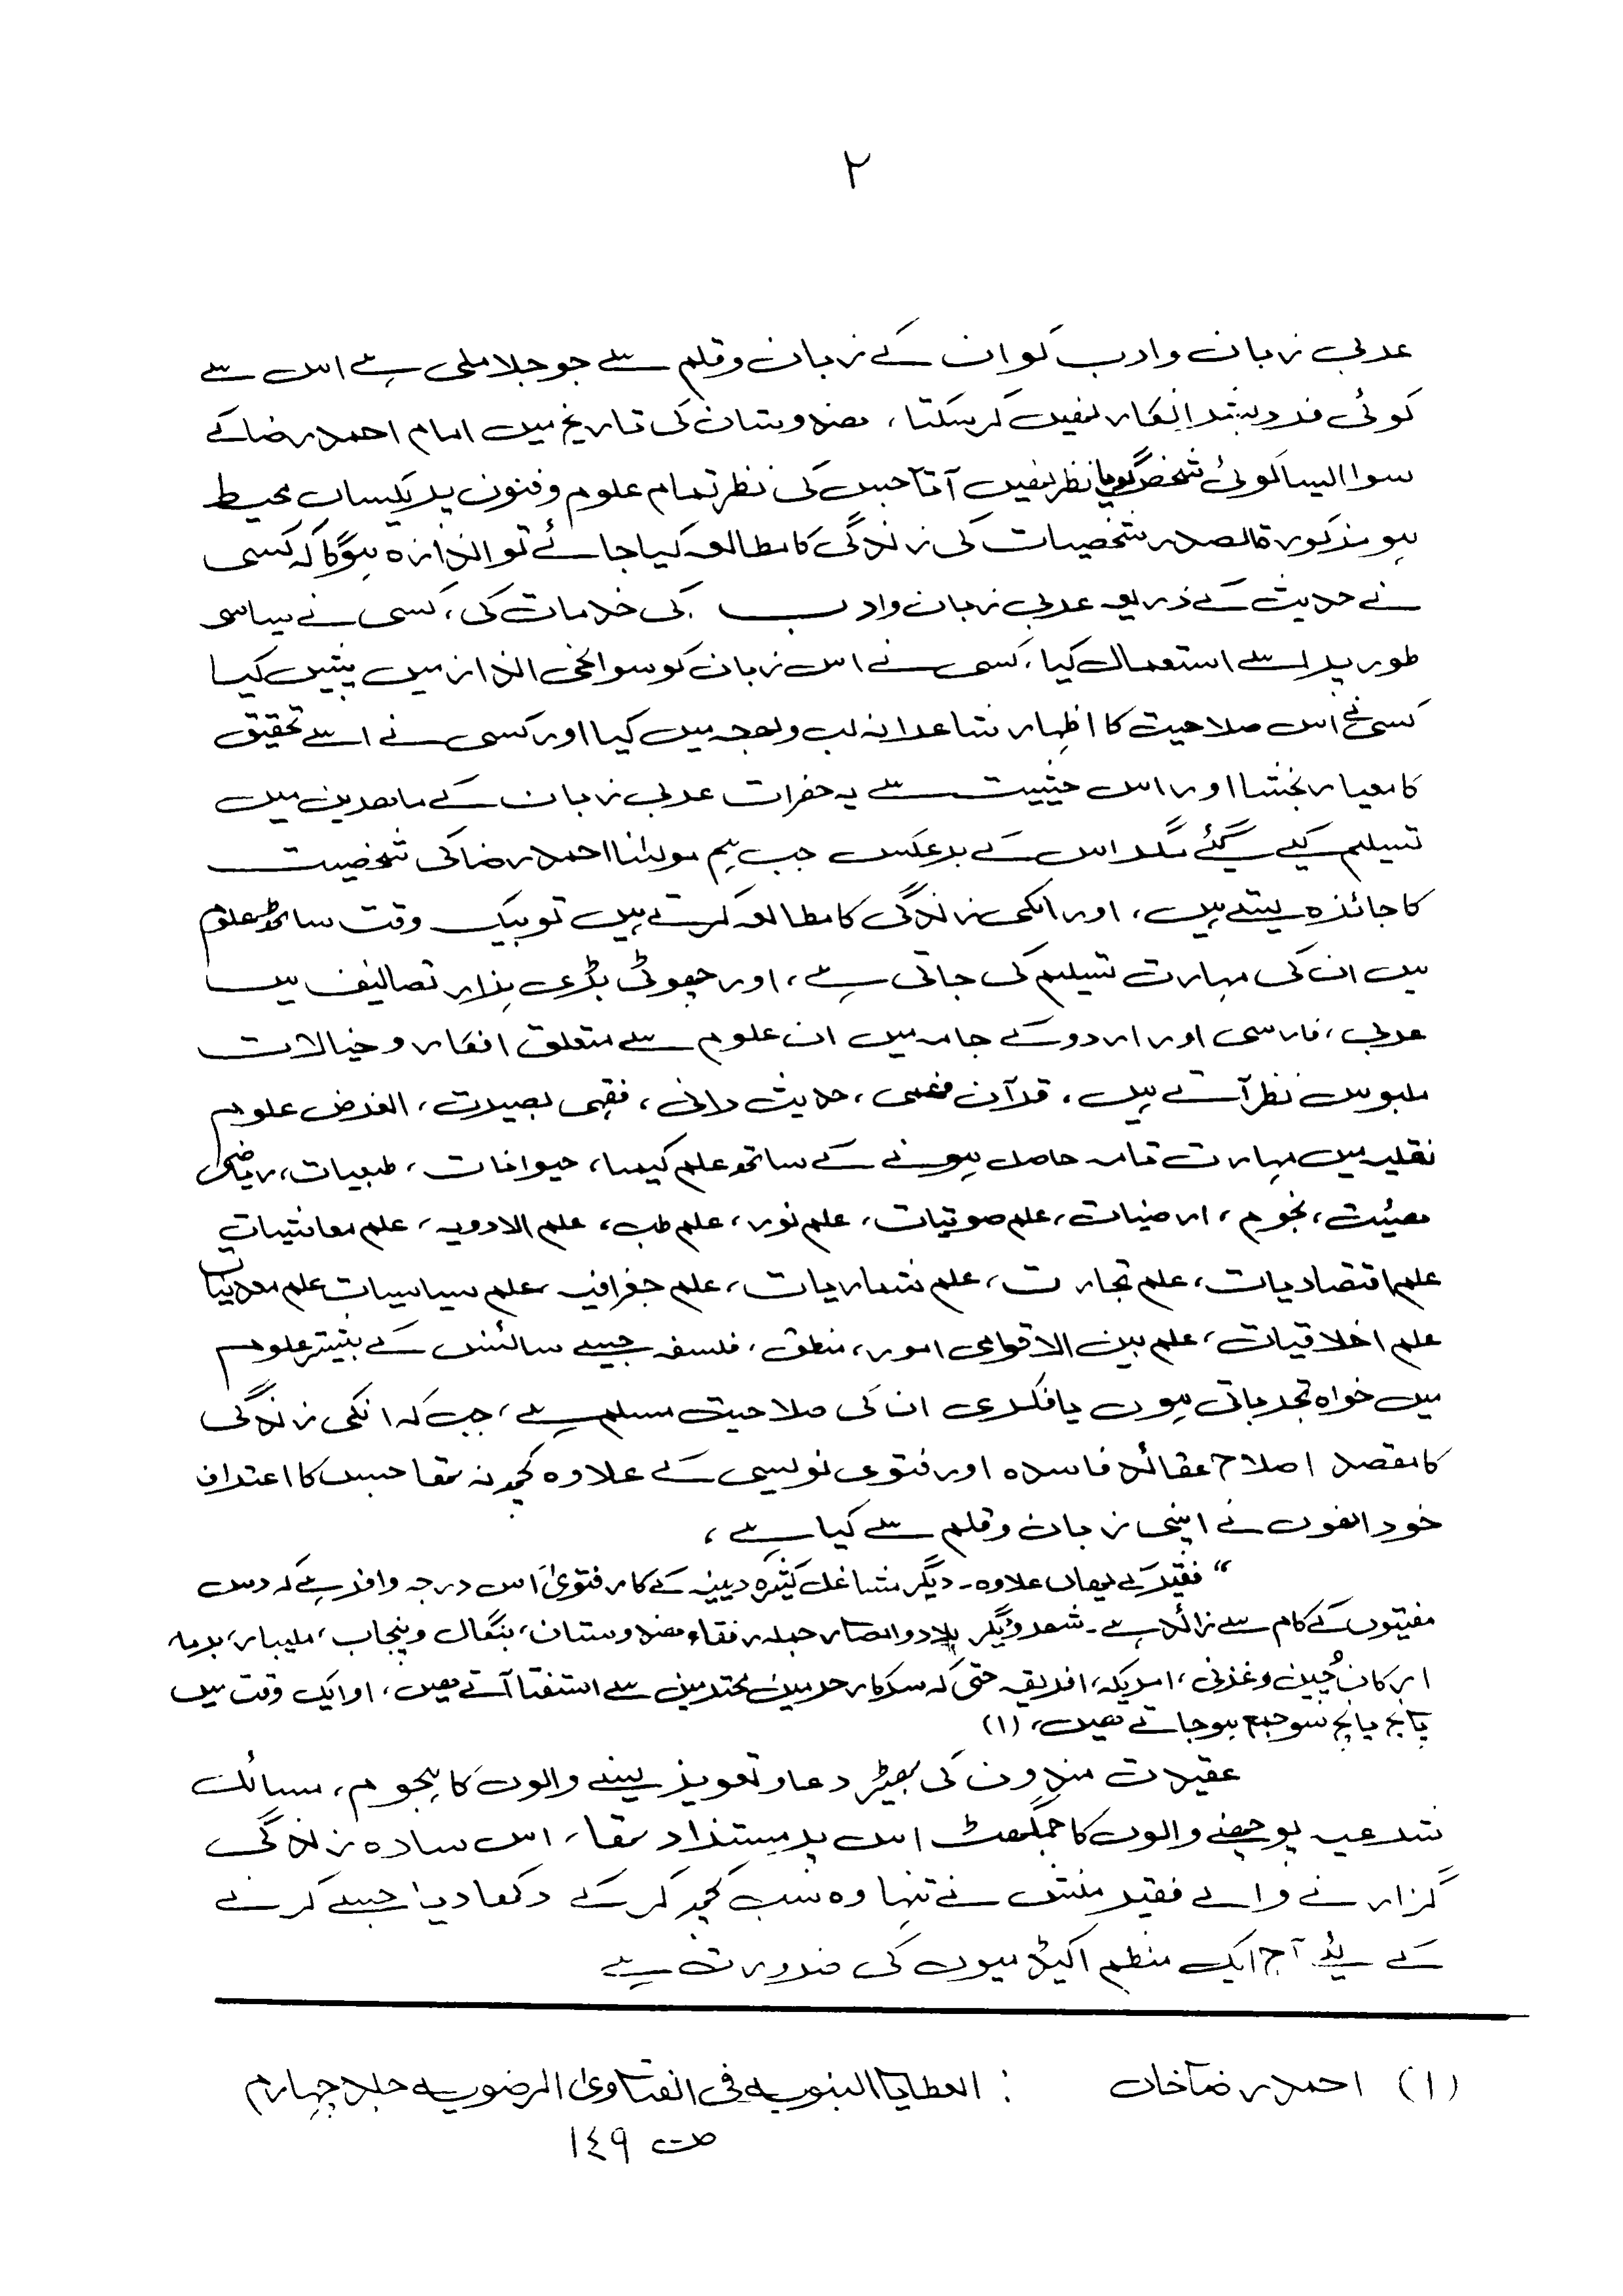 ٢
عربی زبان و ادب کو ان کے زبان و قلم سے جو جلا ملی ہے اس سے
کوئی فرد بشر انکار نہیں کر سکتا، ھندوستان کی تاریخ میں امام احمد رضا کے
سوا ایسا کوئی شخص گویا نظر نہیں آتا جس کی نظر تمام علوم و فنون پر یکساں محیط
ہو مذکورۃ الصدر شخصیات کی زندگی کا مطالعہ کیا جائے تو اندازہ ہوگا کہ کسی
نے حدیث کے ذریعہ عربی زبان و ادب کی خدمات کی، کسی نے سیاسی
طور پر اسے استعمال کیا، کسی نے اس زبان کو سوانحی انداز میں پیش کیا
کسی نے اس صلاحیت کا اظہار شاعرانہ لب و لھجہ میں کیا اور کسی نے اسے تحقیق
کا معیار بخشا اور اس حیثیت سے یہ حضرات عربی زبان کے ماھرین میں
تسلیم کیے گئے مگر اس کے برعکس جب ہم مولٰنا احمد رضا کی شخصیت
کا جائزہ لیتے ہیں، اور انکی زندگی کا مطالعہ کرتے ہیں تو بیک وقت ساٹھ علوم
میں ان کی مہارت تسلیم کی جاتی ہے، اور چھوٹی بڑی ہزار تصانیف میں
عربی، فارسی اور اردو کے جامہ میں ان علوم سے متعلق افکار و خیالات
ملبوس نظر آتے ہیں، قرآن فھمی، حدیث دانی، فقہی بصیرت، الغرض علوم
نقلیہ میں مہارت تامہ حاصل ہونے کے ساتھ علم کیمیا، حیوانات، طبعیات، ریاضی
ھیئت، نجوم، ارضیات، علم صوتیات، علم نور، علم طب، علم الادویہ، علم معاشیات
علم اقتصادیات، علم تجارت، علم شماریات، علم جغرافیہ، علم سیاسیات علم معدنیات
علم اخلاقیات، علم بین الاقوامی امور، منطق، فلسفہ جیسے سائنس کے بیشتر علوم
میں خواہ تجرباتی ہوں یا فکری ان کی صلاحیت مسلم ہے، جب کہ انکی زندگی
کا مقصد اصلاح عقائد فاسدہ اور فتوی نویسی کے علاوہ کچھ نہ تھا جس کا اعتراف
خود انھوں نے اپنی زبان و قلم سے کیا ہے،
“ فقیر کے یھاں علاوہ۔ دیگر مشاغل کثیرہ دینیہ کے کار فتویٰ اس درجہ وافر ہے کہ دس
مفتیوں کے کام سے زائد ہے۔ شھر و دیگر بلاد و امصار جملہ رفقاء ھندوستان، بنگال و پنجاب، ملیبار، برما،
ارکان چین و غزنی، امریکہ، افریقہ حتی کہ سرکار حرمین محترمین سے استفتا آتے ھیں، او ایک وقت میں
پانچ پانچ سو جمع ہو جاتے ھیں، (١)
عقیدت مندوں کی بھیڑ دعا و تعویذ لینے والوں کا ہجوم، مسائل
شرعیہ پوچھنے والوں کا جمگھٹ اس پر مستزاد تھا، اس سادہ زندگی
گزارنے والے فقیر منش نے تنہا وہ سب کچھ کر کے دکھا دیا جسے کرنے
کے لیٔے آج ایک منظم اکیڈمیوں کی ضرورت ہے
(١) احمد رضا خاں : العطایا النبویہ فی الفتاویٰ الرضویہ جلد چہارم
ص ١٤٩